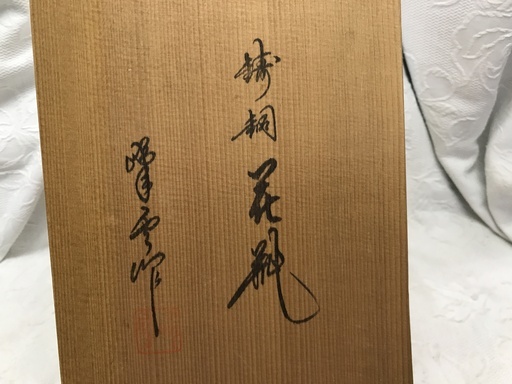 鋳銅花瓶
峰雲作